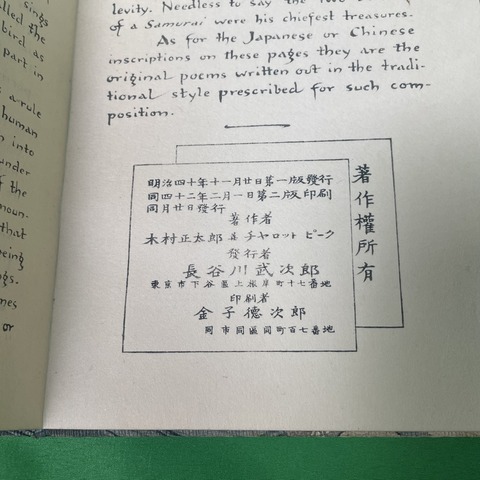 sings
lled the
bird as
part in
s a rule
human
n into
under
f the
noun-
that
being
gs.
mes
or
levity. Needless to say the two
of a Samurai were his chiefest treasures.
As for the Japanese or Chinese
inscriptions on these pages they are the
original poems written out in the tradi-
tional style prescribed for such com-
position.
著作權所有
明治四十年十一月廿日第一版發行
同四十二年二月一日第二版印刷
同月廿日發行
著作者
木村正太郎 & チャロット ピーク
發行者
長谷川武次郎
東京市下谷區上根岸町十七番地
印刷者
金子德次郎
同市同區同町百七番地